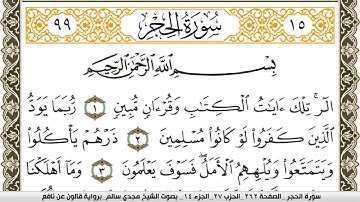 ١٥ سُورَةُ الحِجْرِ ٩٩
بِسْمِ اللَّهِ الرَّحْمَٰنِ الرَّحِيمِ
الٓر۪ۚ تِلْكَ ءَايَٰتُ الْكِتَٰبِ وَقُرْءَانٖ مُّبِينٖ ١ رُّبَمَا يَوَدُّ
الَّذِينَ كَفَرُوا لَوْ كَانُوا مُسْلِمِينَ ٢ ذَرْهُمْ يَأْكُلُوا
وَيَتَمَتَّعُوا وَيُلْهِهِمُ الْأَمَلُ فَسَوْفَ يَعْلَمُونَ ٣ وَمَا أَهْلَكْنَا
سورة الحجر _ الصفحة ٢٦٢ _ الحزب ٢٧ _ الجزء ١٤ _ بصوت الشيخ مجدي سالم _ برواية قالون عن نافع